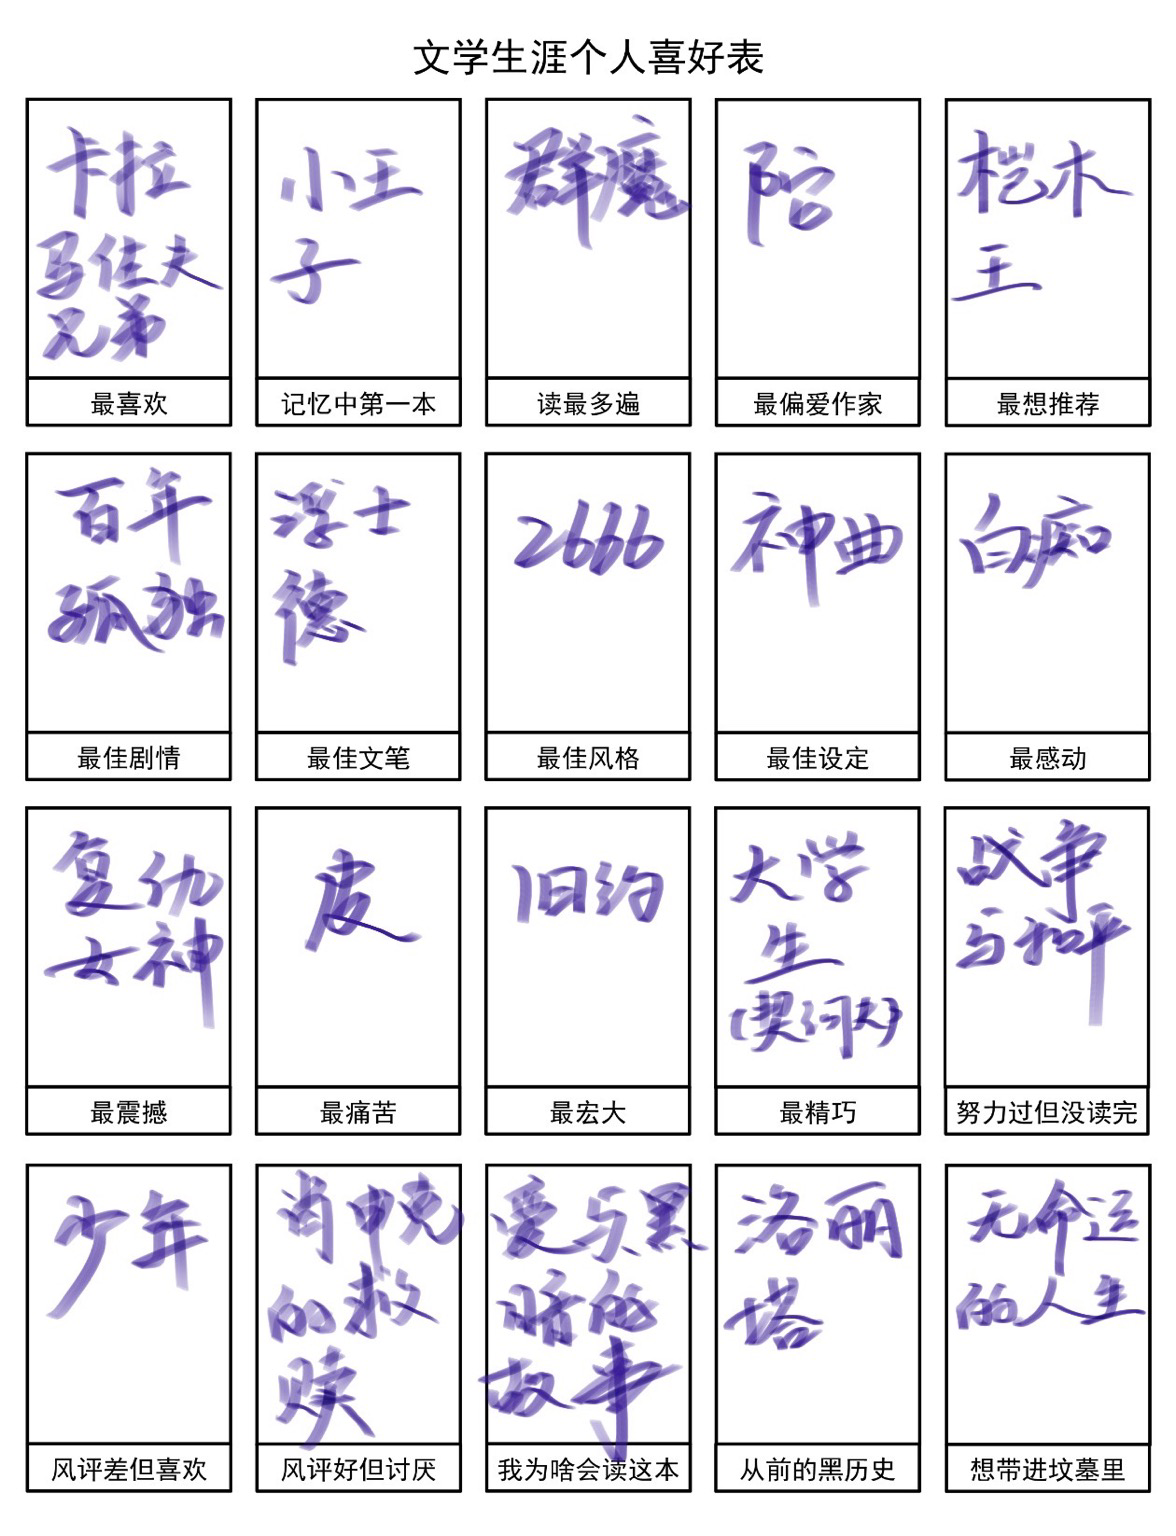 文学生涯个人喜好表
卡拉
马佐夫
兄弟
最喜欢
小王
子
记忆中第一本
群魔
读最多遍
陀
最偏爱作家
桤木
王
最想推荐
百年
孤独
最佳剧情
浮士
德
最佳文笔
2666
最佳风格
神曲
最佳设定
白痴
最感动
复仇
女神
最震撼
皮
最痛苦
旧约
最宏大
大学
生
(契诃夫)
最精巧
战争
与和平
努力过但没读完
少年
风评差但喜欢
肖申克
的救
赎
风评好但讨厌
爱与黑
暗的
故事
我为啥会读这本
洛丽
塔
从前的黑历史
无命运
的人生
想带进坟墓里